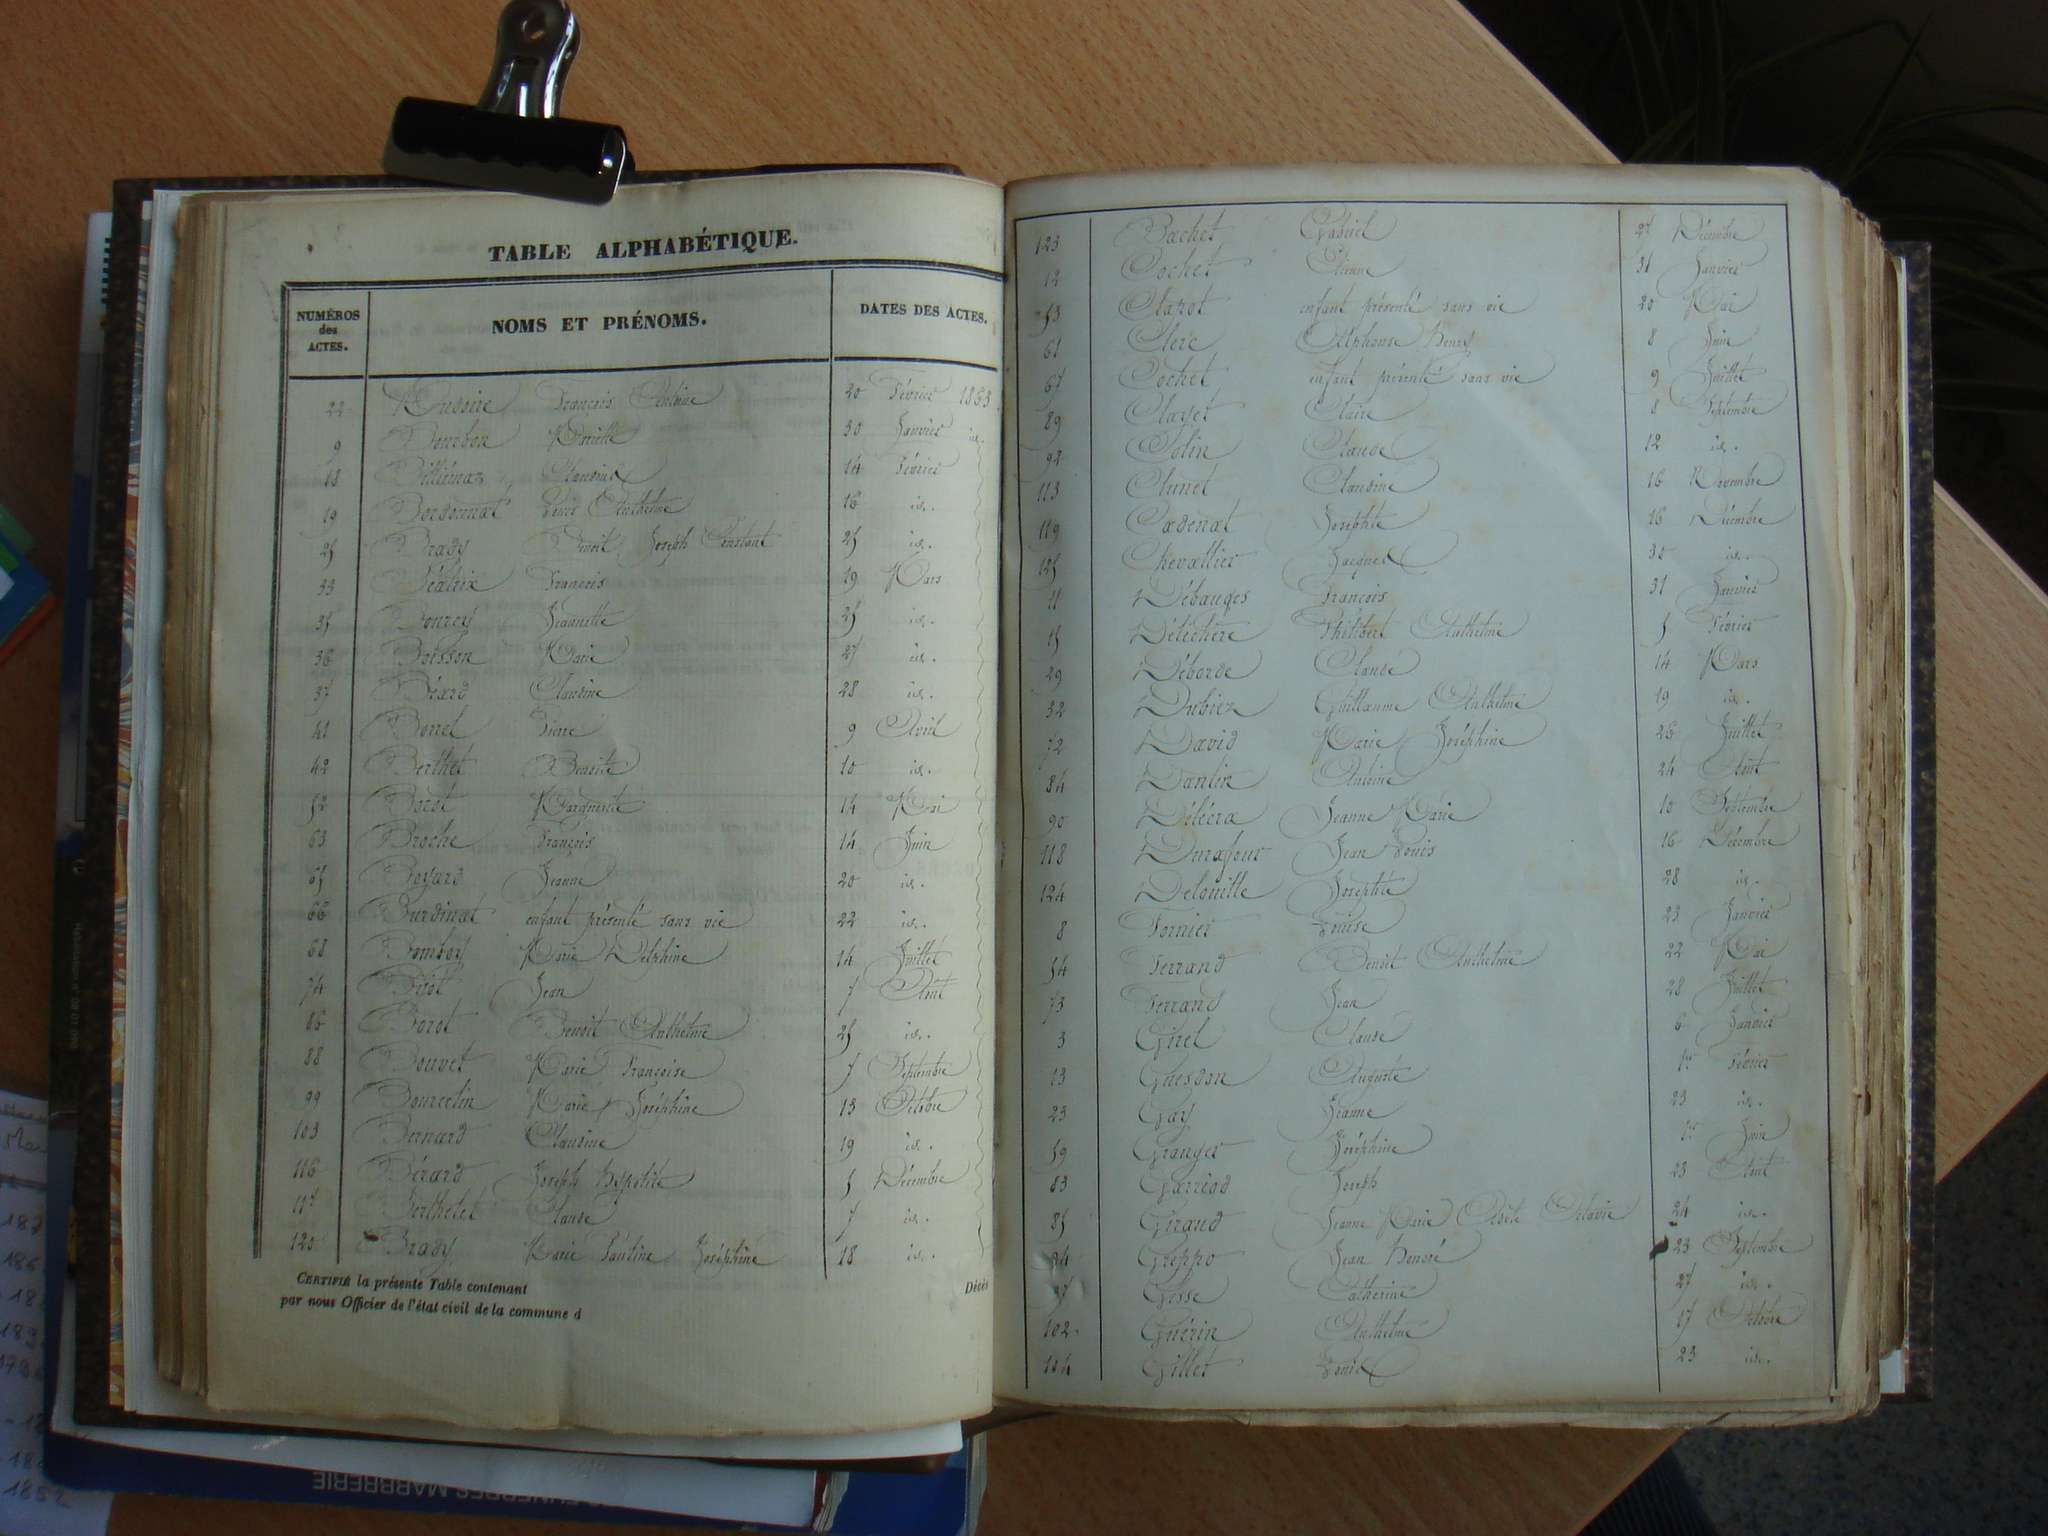 TABLE ALPHABÉTIQUE.
NUMÉROS des ACTES. NOMS ET PRÉNOMS. DATES DES ACTES.
22 François Antoine 20 Février 1853
9 Bourbon Mariette 30 Janvier id.
18 Billiémaz Claudine 14 Février
19 Bordonnat Louis Anthelme 16 id.
25 Brazy Benoit Joseph Constant 25 id.
33 Béatrix François 19 Mars
35 Jeannette 25 id.
36 Boisson Marie 27 id.
37 Béard Claudine 28 id.
41 Borrel Pierre 9 Avril
42 Berthet Benoite 10 id.
52 Borot Marguerite 14 Mai
63 Broche François 14 Juin
65 Boyard Jeanne 20 id.
66 Burdinat enfant présenté sans vie 22 id.
68 Bomboy Marie Delphine 14 Juillet
74 Jean 7 Août
86 Borot Benoit Anthelme 25 id.
88 Bouvet Marie Françoise 7 Septembre
99 Bourcelin Marie Joséphine 13 Octobre
103 Bernard Claudine 19 id.
116 Bérard Joseph Hypolite 5 Décembre
117 Berthelet Claude 7 id.
120 Brazy Marie Pauline Joséphine 18 id.
CERTIFIÉ la présente Table contenant Décès
par nous Officier de l'état civil de la commune d
123 Bachet Gabriel 27 Décembre
12 Cochet Etienne 31 Janvier
53 Clapot enfant présenté sans vie 20 Mai
61 Clerc Alphonse Henry 8 Juin
67 Cochet enfant présenté sans vie 9 Juillet
89 Clayet Claire 8 Septembre
92 Colin Claude 12 id.
113 Clunet Claudine 16 Novembre
119 Cadenat Josephte 16 Décembre
125 Chevallier Jacques 30 id.
11 Débauges François 31 Janvier
15 Déléchère Philibert Anthelme 5 Février
29 Déborde Claude 14 Mars
32 Dubiez Guillaume Anthelme 19 id.
72 David Marie Joséphine 26 Juillet
84 Dantin Antoine 24 Août
90 Délécra Jeanne Marie 10 Septembre
118 Durafour Jean Louis 16 Décembre
124 Delouille Josephte 28 id.
8 Fornier Louise 23 Janvier
54 Ferrand Benoit Anthelme 22 Mai
73 Ferrand Jean 28 Juillet
3 Girel Claude 6 Janvier
13 Guesdon Auguste 1er Février
23 Gay Jeanne 23 id.
59 Granger Joséphine 1er Juin
83 Garriod Joseph 23 Août
85 Giraud Jeanne Marie Octavie 24 id.
94 Greppo Jean Honoré 23 Septembre
97 Gosse Catherine 27 id.
102 Guérin Anthelme 17 Octobre
104 Gillet Louis 23 id.